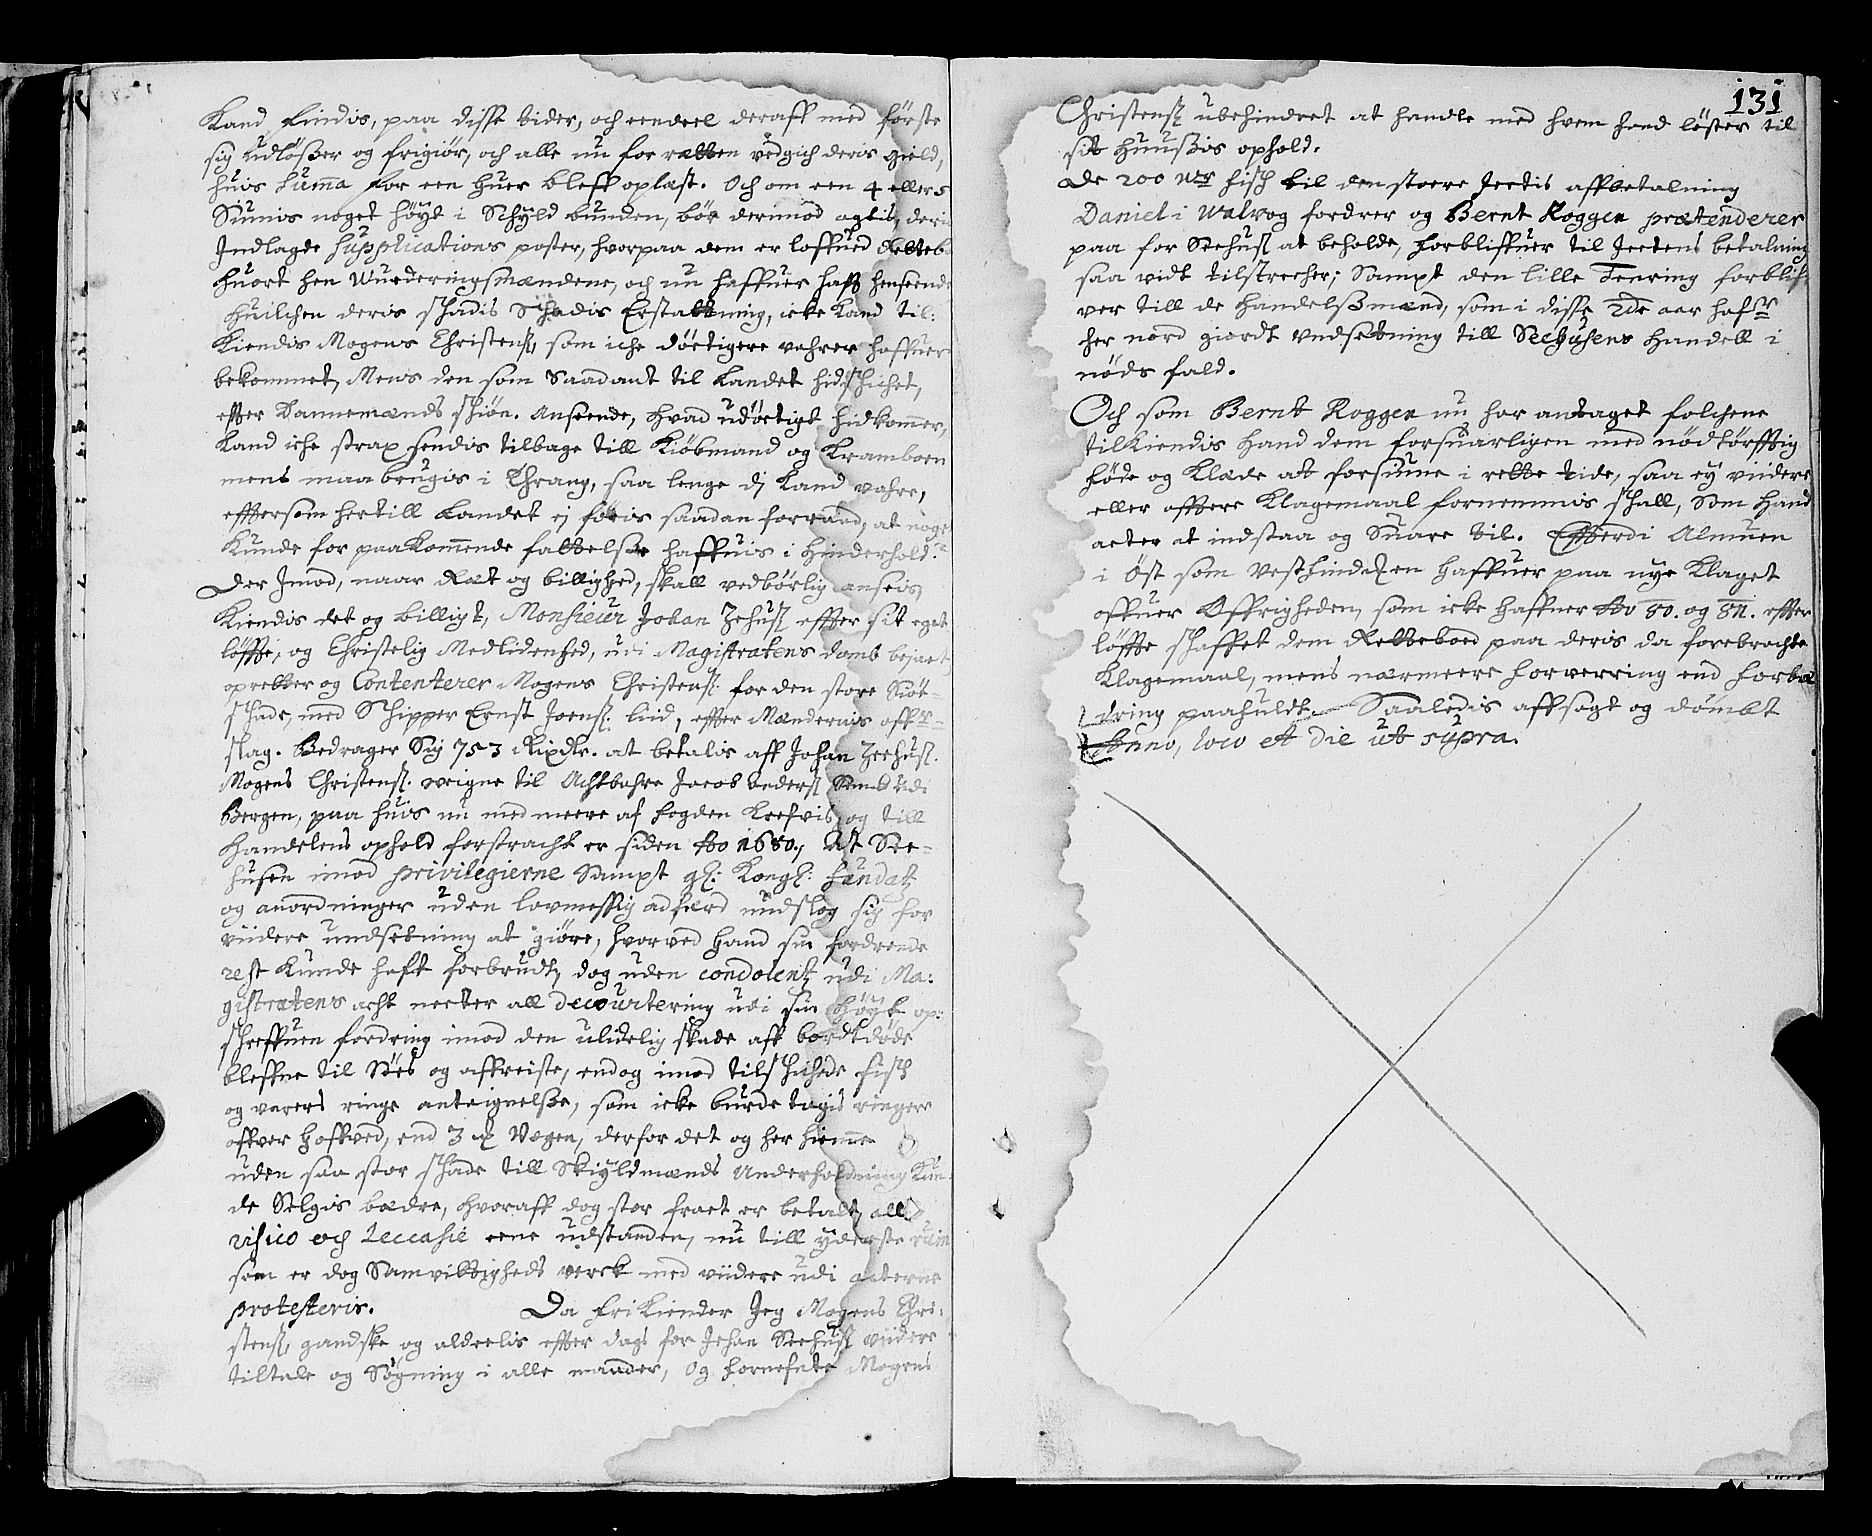 Kand findis, paa disse tider, och eendeel deraff med første
sig Udløßer og frigiør, och alle nu for rætten vedgich deris gield,
huis Suma for een huer bleff oplæst. Och om een 4 eller 5
Sumis noget høyt i Schyld bunden, bør derimod agtis, deris
Indlagde Supplications poster, hvorpaa dem er loffued Retteb
huort hen Wurderingsmændene, och nu haffuer hafft henseende
huilchen deris schadis Schadis Erstattning, icke kand til:
Kiendis Mogens Christens, som iche dörtigere vahrer haffuer
bekommet, Mens den som Saadant til Landet hidschichet,
effter Dannemænds schiøn. Anseende, hvad udörtigt hidkommer,
Kand iche strax sendis tilbage till Kiöbmand og Kramboen
mens maa brugis i Thrang, saa lenge dj kand vahre,
efftersom hertill Landet ej føris saadan forraad, at noget
Kunde for paakommende fattelse haffuis i hinderhold.
Der Imod, naar Ræt og billighed, skall vedbørlig anseeis,
Kiendis det og billigt, Monsieur Johan Zehus effter sit eget
løffte, og Christelig Medlidenhed, udi Magistratens Domb bejaet,
opretter og Contenterer Mogens Christens for den store Siöt-
schade, med Schipper Ernst Joens: liid, effter Mændernis aff
slag. Bedrager Sig 753 Rixdr. at betalis aff Johan Zeehus.
Mogens Christens. veigne til Achtbahre Jacob Anders Sams udi
Bergen, paa huis nu med meere af fogden Leefvis og till
Handelens ophold forstracht er siden Ao 1680, At See-
husen imod privilegierne Sampt gl: Kongl: fundatz
og anordninger uden lovmessig adfærd undslog sig for
viidere undsetning at giøre, hvorved hand sin fordrende
rest kunde haft forbrudt, dog uden condolentz udi Ma:
gistratens acht necter all decourtering udi sin høyt op:
schreffuen fordring imod den ulidelig skade aff bortdøde
bleffne til Siös og affreiste, endog imod tilschichede fisch
og varers ringe anteignelse, som icke burde tagis ringere
offver hoffved, end 3 # Vogen, derfor det og her hiemme
uden saa stor schade till Skiyldmænds Underholdning Kun-
de Selgis bædre, hvoraff dog stor fract er betalt, all
risico och Leccasie eene udstanden, nu till yderste ruin
som er dog Samvittigheds verck med viidere udi acterne
protesteris. Da frikiender Jeg Mogens Chri:
stens, gandske og aldeelis effter dags for Johan Seehus viidere
tiltale og Søgning i alle maader, Og fornefnte Mogens
131
Christens ubehindret at handle med hvem hand løster til
sit huusis ophold.
De 200 wr fisch til den stoere Jectis affbetalning
Daniel i Walvog fordrer og Bernt Roggen prætenderer
paa for Seehus at beholde, forbliffuer til Jectens betalning
saa vidt tilstrecher; Sampt den lille Fenring forblif
ver till de Handelsmænd, som i disse 2de aar hafr
her nord giordt undsetning till Seehusens Handell i
nöds fald.
Och som Bernt Roggen nu har antaget folchene
tilkiendis hand dem forsuarligen med nødtørfftig
føde og Klæde at forsiune i rette tide, saa ey viidere
eller offtere Klagemaal fornemmis schall, Som hand
acter at indstaa og Suare til. Effterdi Almuen
i Öst som Vestfinden haffuer paa nye Klaget
offuer Öffrigheden, som icke haffuer Ao 80. og 81. effter
løffte schaffet dem Retteboed paa deris da forebrachte
Klagemaal, mens nærmeere forverring end forbæ
dring paahuldt, Saaledis affsagt og dömbt
Anno, loco et die ut supra.